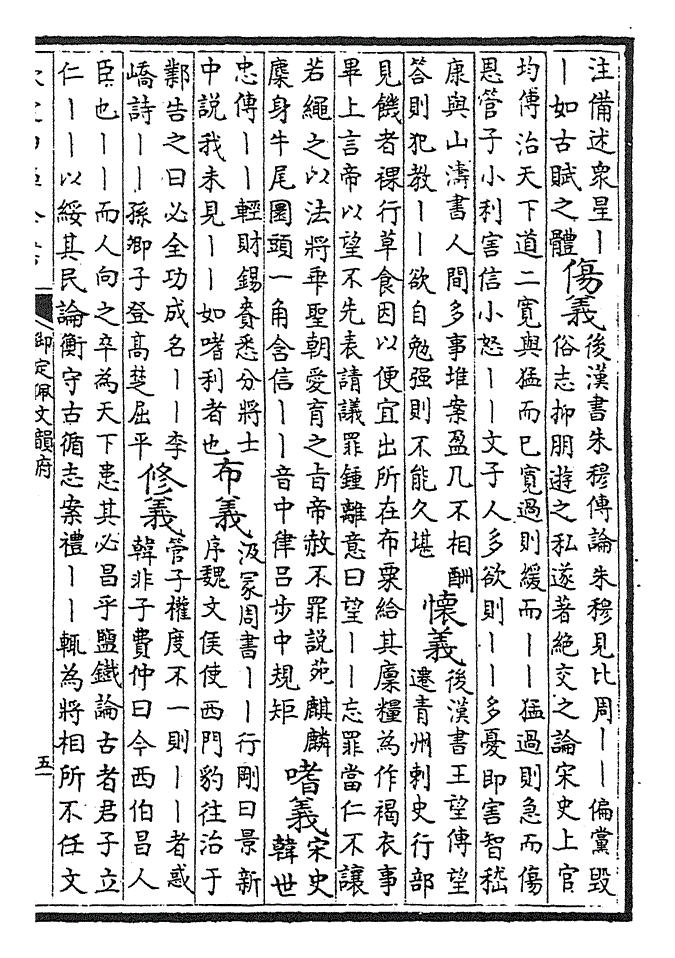 注備述衆星丨
丨如古賦之體
傷義
後漢書朱穆傳論朱穆見比周丨丨偏黨毁
俗志抑朋遊之私遂著絶交之論宋史上官
均傅治天下道二寛與猛而已寛過則緩而丨丨猛過則急而傷
恩管子小利害信小怒丨丨文子人多欲則丨丨多憂即害智嵇
康與山濤書人間多事堆案盈几不相酬
答則犯教丨丨欲自勉强則不能久堪
懐義
後漢書王望傳望
遷青州刺史行部
見饑者祼行草食因以便宜出所在布粟給其廩糧為作褐衣事
畢上言帝以望不先表請議罪鍾離意曰望丨丨忘罪當仁不讓
若繩之以法將乖聖朝愛育之旨帝赦不罪説苑麒麟
麋身牛尾圜頭一角含信丨丨音中律吕步中規矩
嗜義
宋史
韓世
忠傳丨丨輕財錫賚悉分將士
中説我未見丨丨如嗜利者也
布義
汲冢周書丨丨行剛曰景新
序魏文侯使西門豹往治于
鄴告之曰必全功成名丨丨李
嶠詩丨丨孫卿子登髙楚屈平
修義
管子權度不一則丨丨者惑
韓非子費仲曰今西伯昌人
臣也丨丨而人向之卒為天下患其必昌乎鹽鐵論古者君子立
仁丨丨以綏其民論衡守古循志案禮丨丨輒為將相所不任文
御定佩文韻府
五一